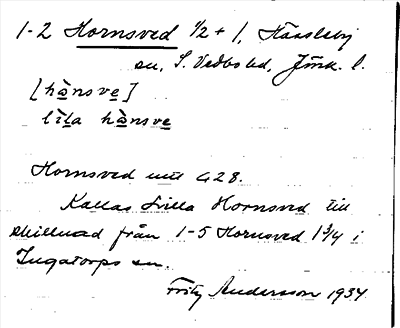 1-2 Hornsved 1/2 + 1, Hässleby
sn, S. Vedbo hd, Jönk. l.
[hànsvẹ]
lìla hànsvẹ
Hornsved mtl 428.
Kallas Lilla Hornsved till
skillnad från 1-5 Hornsved 1 3/4 i
Ingatorps sn.
Fritz Andersson 1934